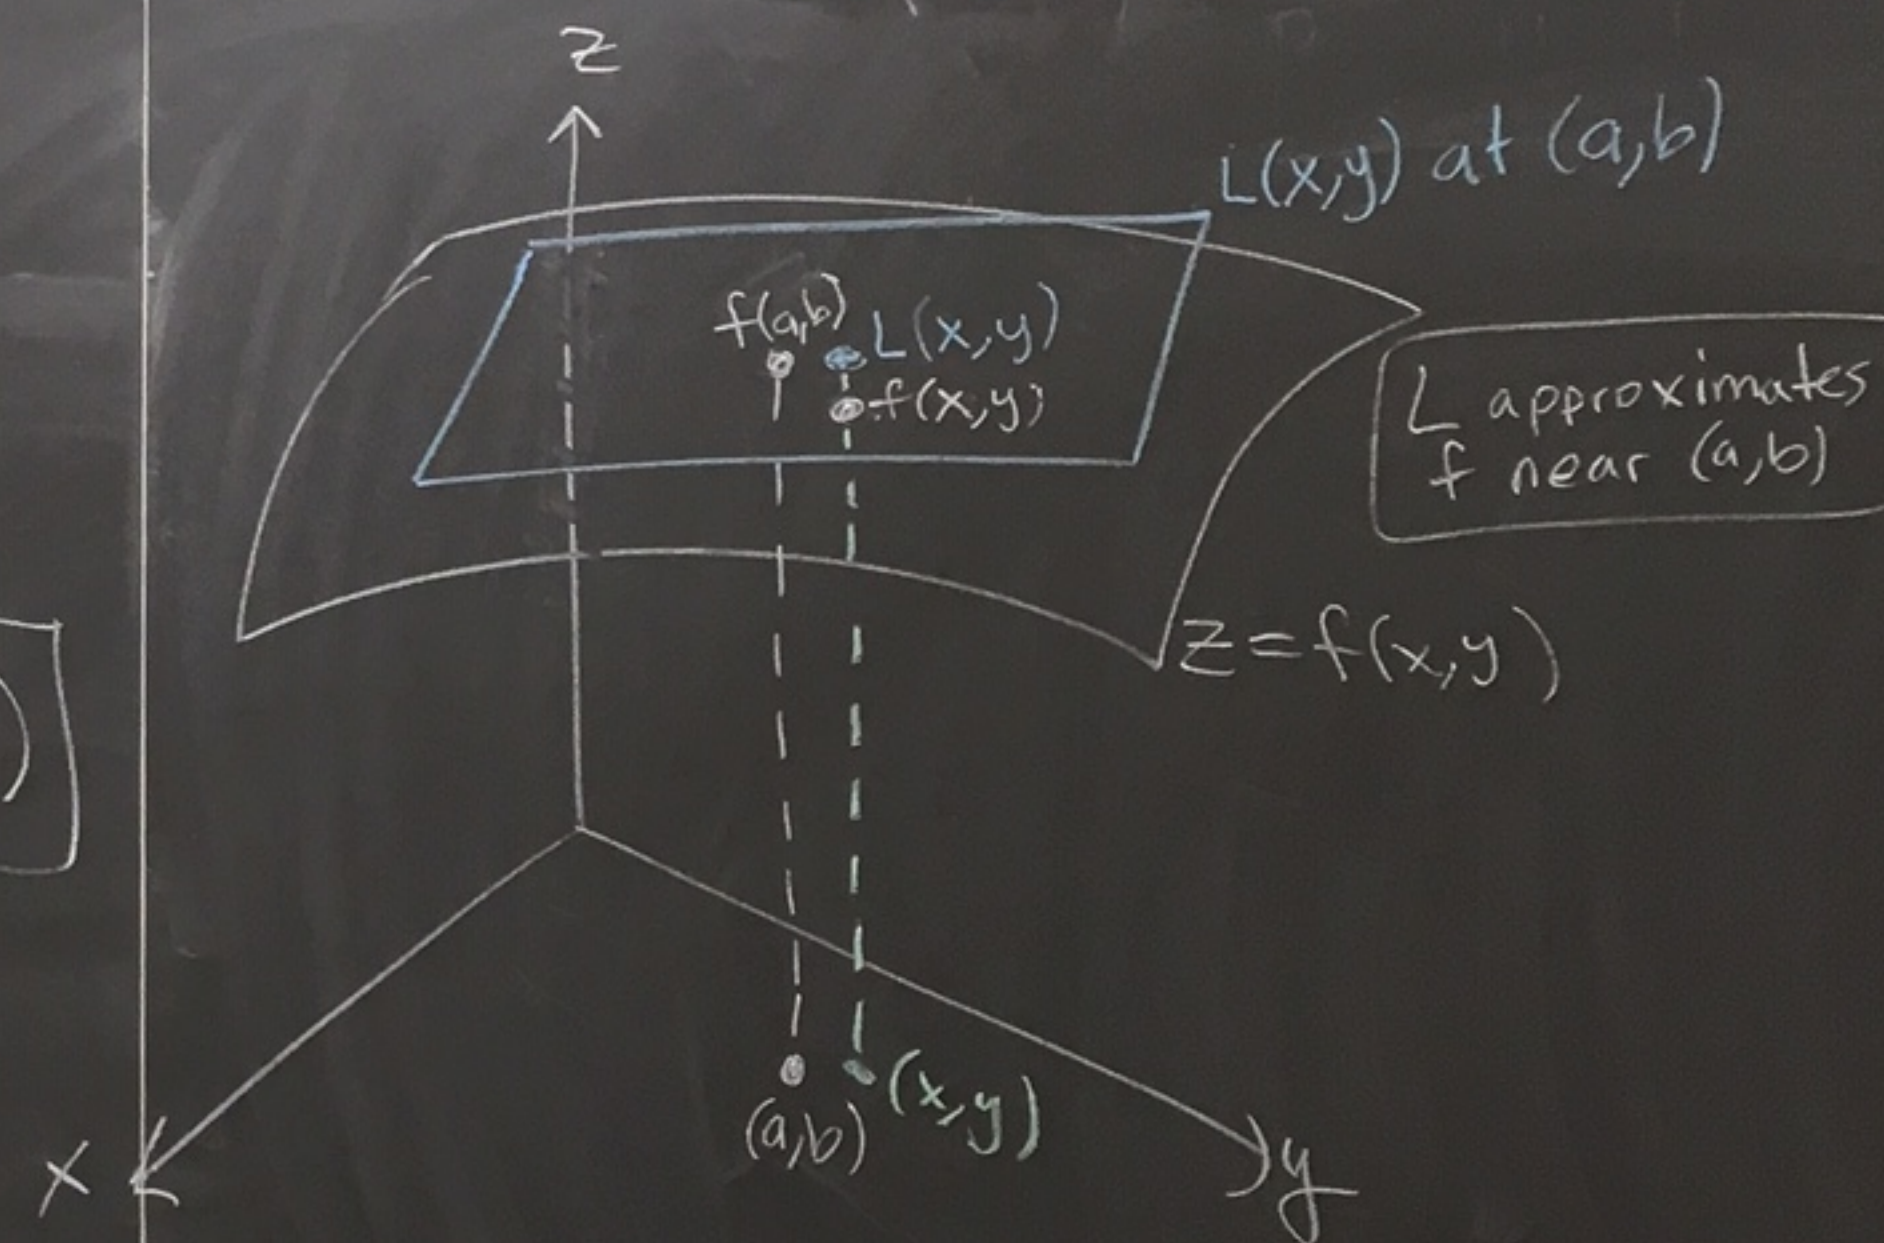 z
L(x,y) at (a,b)
f(a,b)
L(x,y)
f(x,y)
L approximates
f near (a,b)
z=f(x,y)
)
(a,b)
(x,y)
x
y